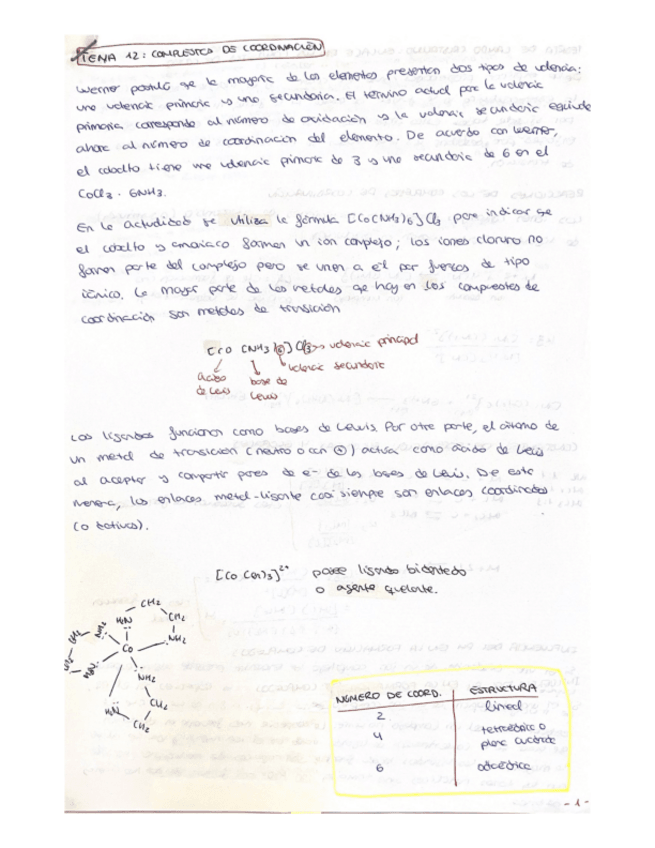 TEMA 12: COMPUESTOS DE COORDINACIÓN
Werner postuló qe la mayoría de los elementos presentan dos tipos de valencia:
una valencia primaria y una secundaria. El término actual para la valencia
primaria corresponde al número de oxidación y la valencia secundaria equivale
ahora al número de coordinación del elemento. De acuerdo con Werner,
el cobalto tiene una valencia primaria de 3 y una secundaria de 6 en el
CoCl3 · 6NH3.
En la actualidad se utiliza la fórmula [Co(NH3)6]Cl3 para indicar qe
el cobalto y amoniaco forman un ión complejo; los iones cloruro no
forman parte del complejo pero se unen a él por fuerzas de tipo
iónico. La mayor parte de los metales qe hay en los compuestos de
coordinación son metales de transición
[CO (NH3)6]Cl3 → valencia principal
valencia secundaria
ácido base de
de Lewis Lewis
Los ligandos funcionan como bases de Lewis. Por otra parte, el átomo de
un metal de transición (neutro o con ⊕) actúa como ácido de Lewis
al aceptar y compartir pares de e- de las bases de Lewis. De esta
manera, los enlaces metal-ligante casi siempre son enlaces coordinados
(o dativos).
[Co(en)3]2+ posee ligando bidentado
o agente quelante.
CH2
H2N CH2
CH2 NH2 NH2
Co
CH2 H2N
NH2
CH2
H2N CH2
NÚMERO DE COORD. ESTRUCTURA
2 lineal
4 tetraédrica o
plana cuadrada
6 octaédrica
- 1 -